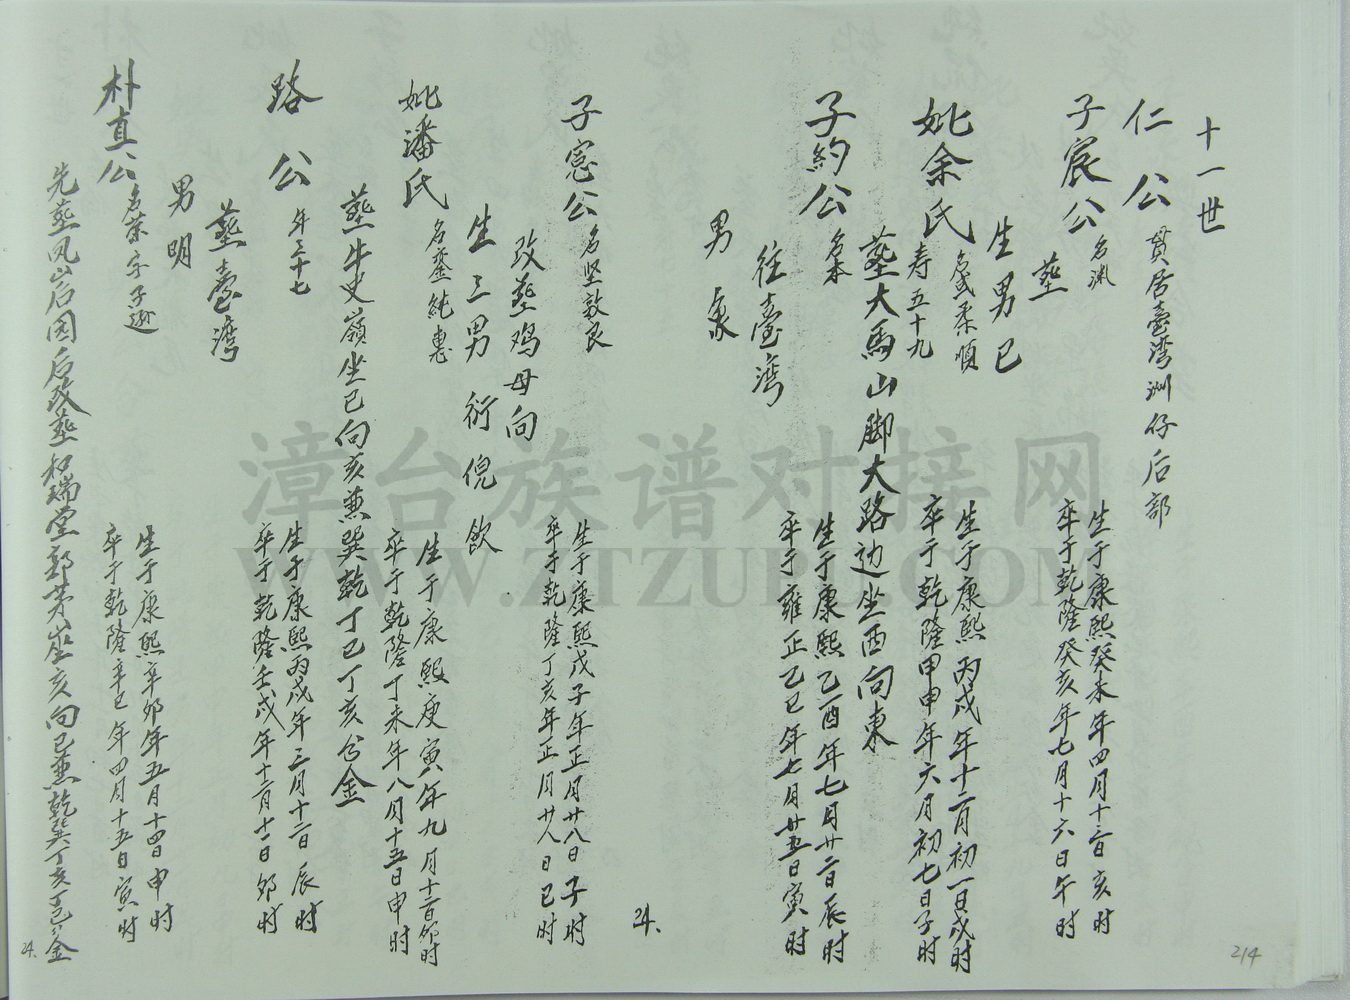 十一世
仁公 贯居臺湾洲仔后部
子宸公 名渊 生于康熙癸未年四月十二日亥时
卒于乾隆癸亥年七月十六日午时
葬
生男已
妣余氏 名柔順 生于康熙丙戌年十二月初一日戌时
寿五十九 卒于乾隆甲申年六月初七日子时
葬大馬山脚大路边坐酉向東
子約公 名本 生于康熙乙酉年七月廿二日辰时
卒于雍正乙巳年七月廿五日寅时
往臺湾
男
24.
子宽公 名坚敦良 生于康熙戊子年正月廿八日子时
卒于乾隆丁亥年正月廿八日巳时
改葬鸡母向
生三男 衍 倪 飲
妣潘氏 名 純惠 生于康熙庚寅年九月十二日卯时
卒于乾隆丁未年八月十五日申时
葬牛史嶺坐巳向亥兼巽乾丁巳丁亥分金
路公 年三十七 生于康熙丙戌年三月十二日辰时
卒于乾隆壬戌年十二月十二日卯时
葬臺湾
男明
朴真公 名荣字子逊 生于康熙辛卯年五月十四日申时
卒于乾隆辛巳年四月十五日寅时
先葬凤岩后园后改葬和瑞堂部 坐亥向巳兼乾巽丁亥丁巳分金
24.
214
漳台族谱对接网
WWW.ZTZUPU.COM